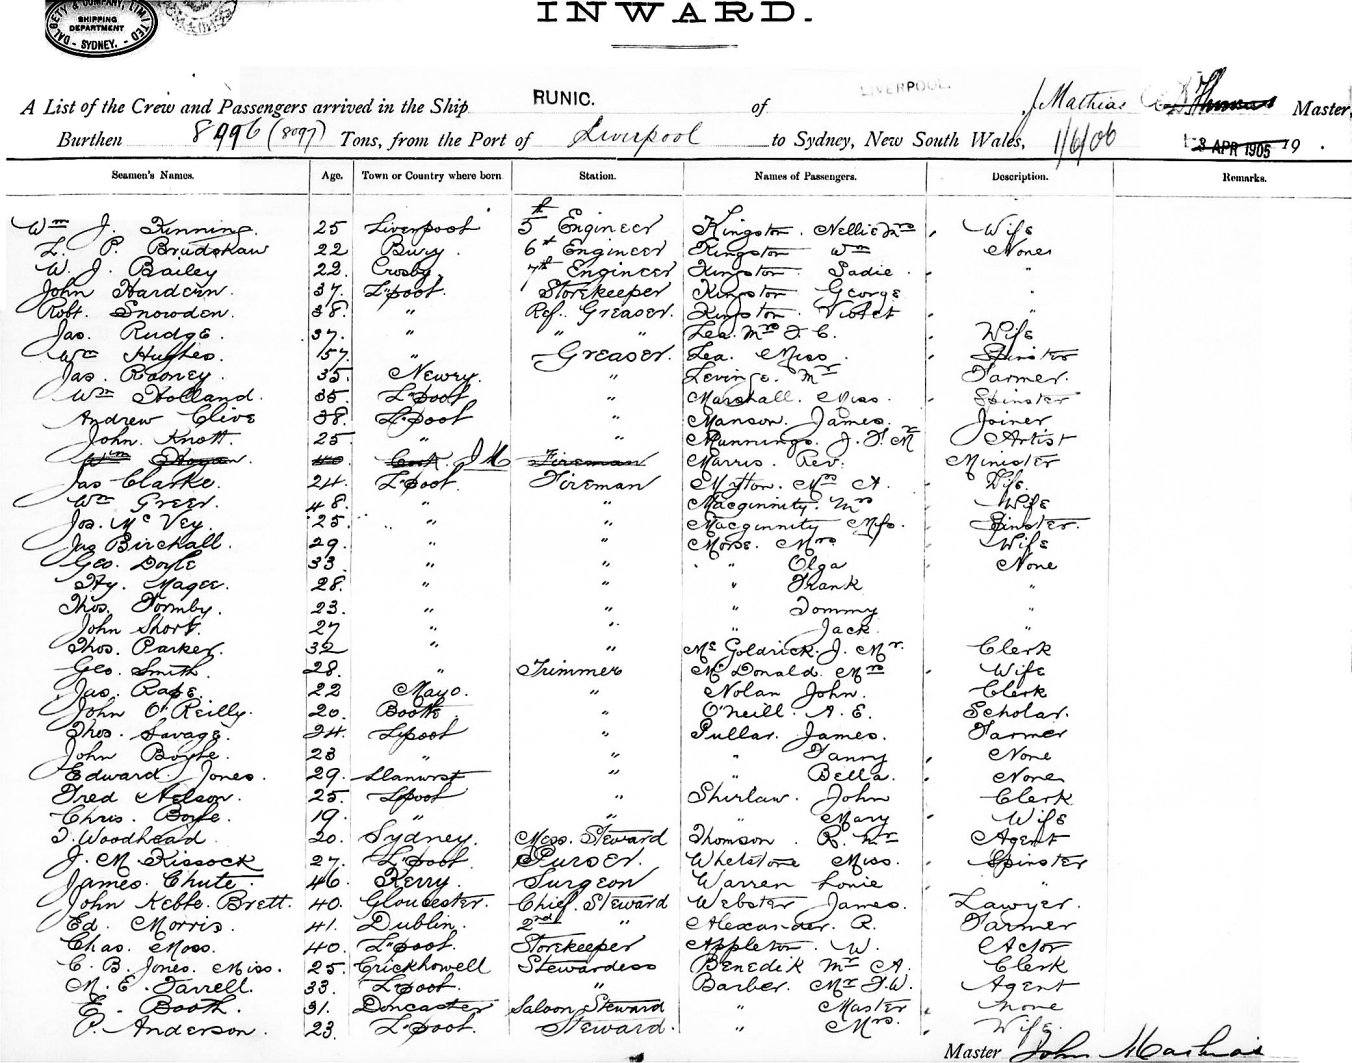 DALGETY & COMPANY, LIMITED
SHIPPING
DEPARTMENT
- SYDNEY. -
INWARD.
A List of the Crew and Passengers arrived in the Ship RUNIC. of LIVERPOOL. J Mathias Master,
Burthen 8996 (8097) Tons, from the Port of Liverpool to Sydney, New South Wales, 1/6/06 3 APR 1905 19 .
Seamen's Names. Age. Town or Country where born Station. Names of Passengers. Description. Remarks.
Wm J. Kinning. 25 Liverpool 5th Engineer Kingston. Nellie Mrs Wife
L. P. Bradshaw 22 Bury. 6th Engineer Kingston Wm None
W. J. Bailey 22 Crosby. 7th Engineer Kingston Sadie. "
John Hardern. 37. L'pool. Storekeeper Kingston George "
Robt. Snowden. 38. " Ref. Greaser. Kingston Violet "
Jas. Rudge. 37. " " " Lea. Mrs F. C. Wife
Wm Hughes. 57. " Greaser. Lea. Miss. Spinster
Jas. Rooney. 35. Newry. " Levinge. Mr Farmer.
Wm Holland. 35. L'pool " Marshall. Miss. Spinster
Andrew Clive 38. L'pool " Manson. James. Joiner
John. Knott. 25 " " Munnings. J. F. Mr Artist
Wm Hogan. 40 Cork J M Fireman Marris. Rev. Minister
Jas Clarke. 24. L'pool. Fireman Mytton. Mrs A. Wife.
Wm Greer. 48. " " Macginnity. Mrs Wife
Jos. McVey. 25 " " Macginnity Miss. Spinster.
Jas Birchall. 29. " " Morse. Mrs Wife
Geo. Doyle 33. " " " Olga None
Hy. Magee. 28. " " " Frank "
Thos. Formby. 23. " " " Tommy "
John Short. 27 " " " Jack. "
Thos. Parker. 32 " " McGoldrick. J. Mr. Clerk
Geo. Smith. 28. " Trimmer McDonald. Mrs Wife
Jas. Rape. 22 Mayo. " Nolan John. Clerk
John O'Reilly. 20. Bootle. " O'Neill. A. E. Scholar.
Thos. Savage. 24. L'pool " Pullar. James. Farmer
John Boyle. 23 " " " Fanny None
Edward Jones. 29. Llanwrst " " Bella. None
Fred Nelson. 25. L'pool " Shirlaw. John Clerk
Chris. Boyle. 19. " " " Mary Wife
T. Woodhead 20. Sydney. Mess. Steward Thomson R. Mr Agent
J. M Kissock 27. L'pool. Purser. Whetstone Miss. Spinster
James. Chute. 46. Kerry. Surgeon Warren Louie "
John Kebbe. Brett. 40. Gloucester. Chief. Steward Webster James. Lawyer.
Ed. Morris. 41. Dublin. 2nd " Alexander. R. Farmer
Chas. Moss. 40. L'pool. Storekeeper Appleton. W. Actor
C. B. Jones. Miss. 25. Crickhowell Stewardess Benedik Mr A. Clerk
M. E. Farrell. 33. L'pool. " Barber. Mr F. W. Agent
E. Booth. 31. Doncaster Saloon Steward " Master None
P. Anderson. 23. L'pool. Steward. " Mrs. Wife.
Master John Mathias